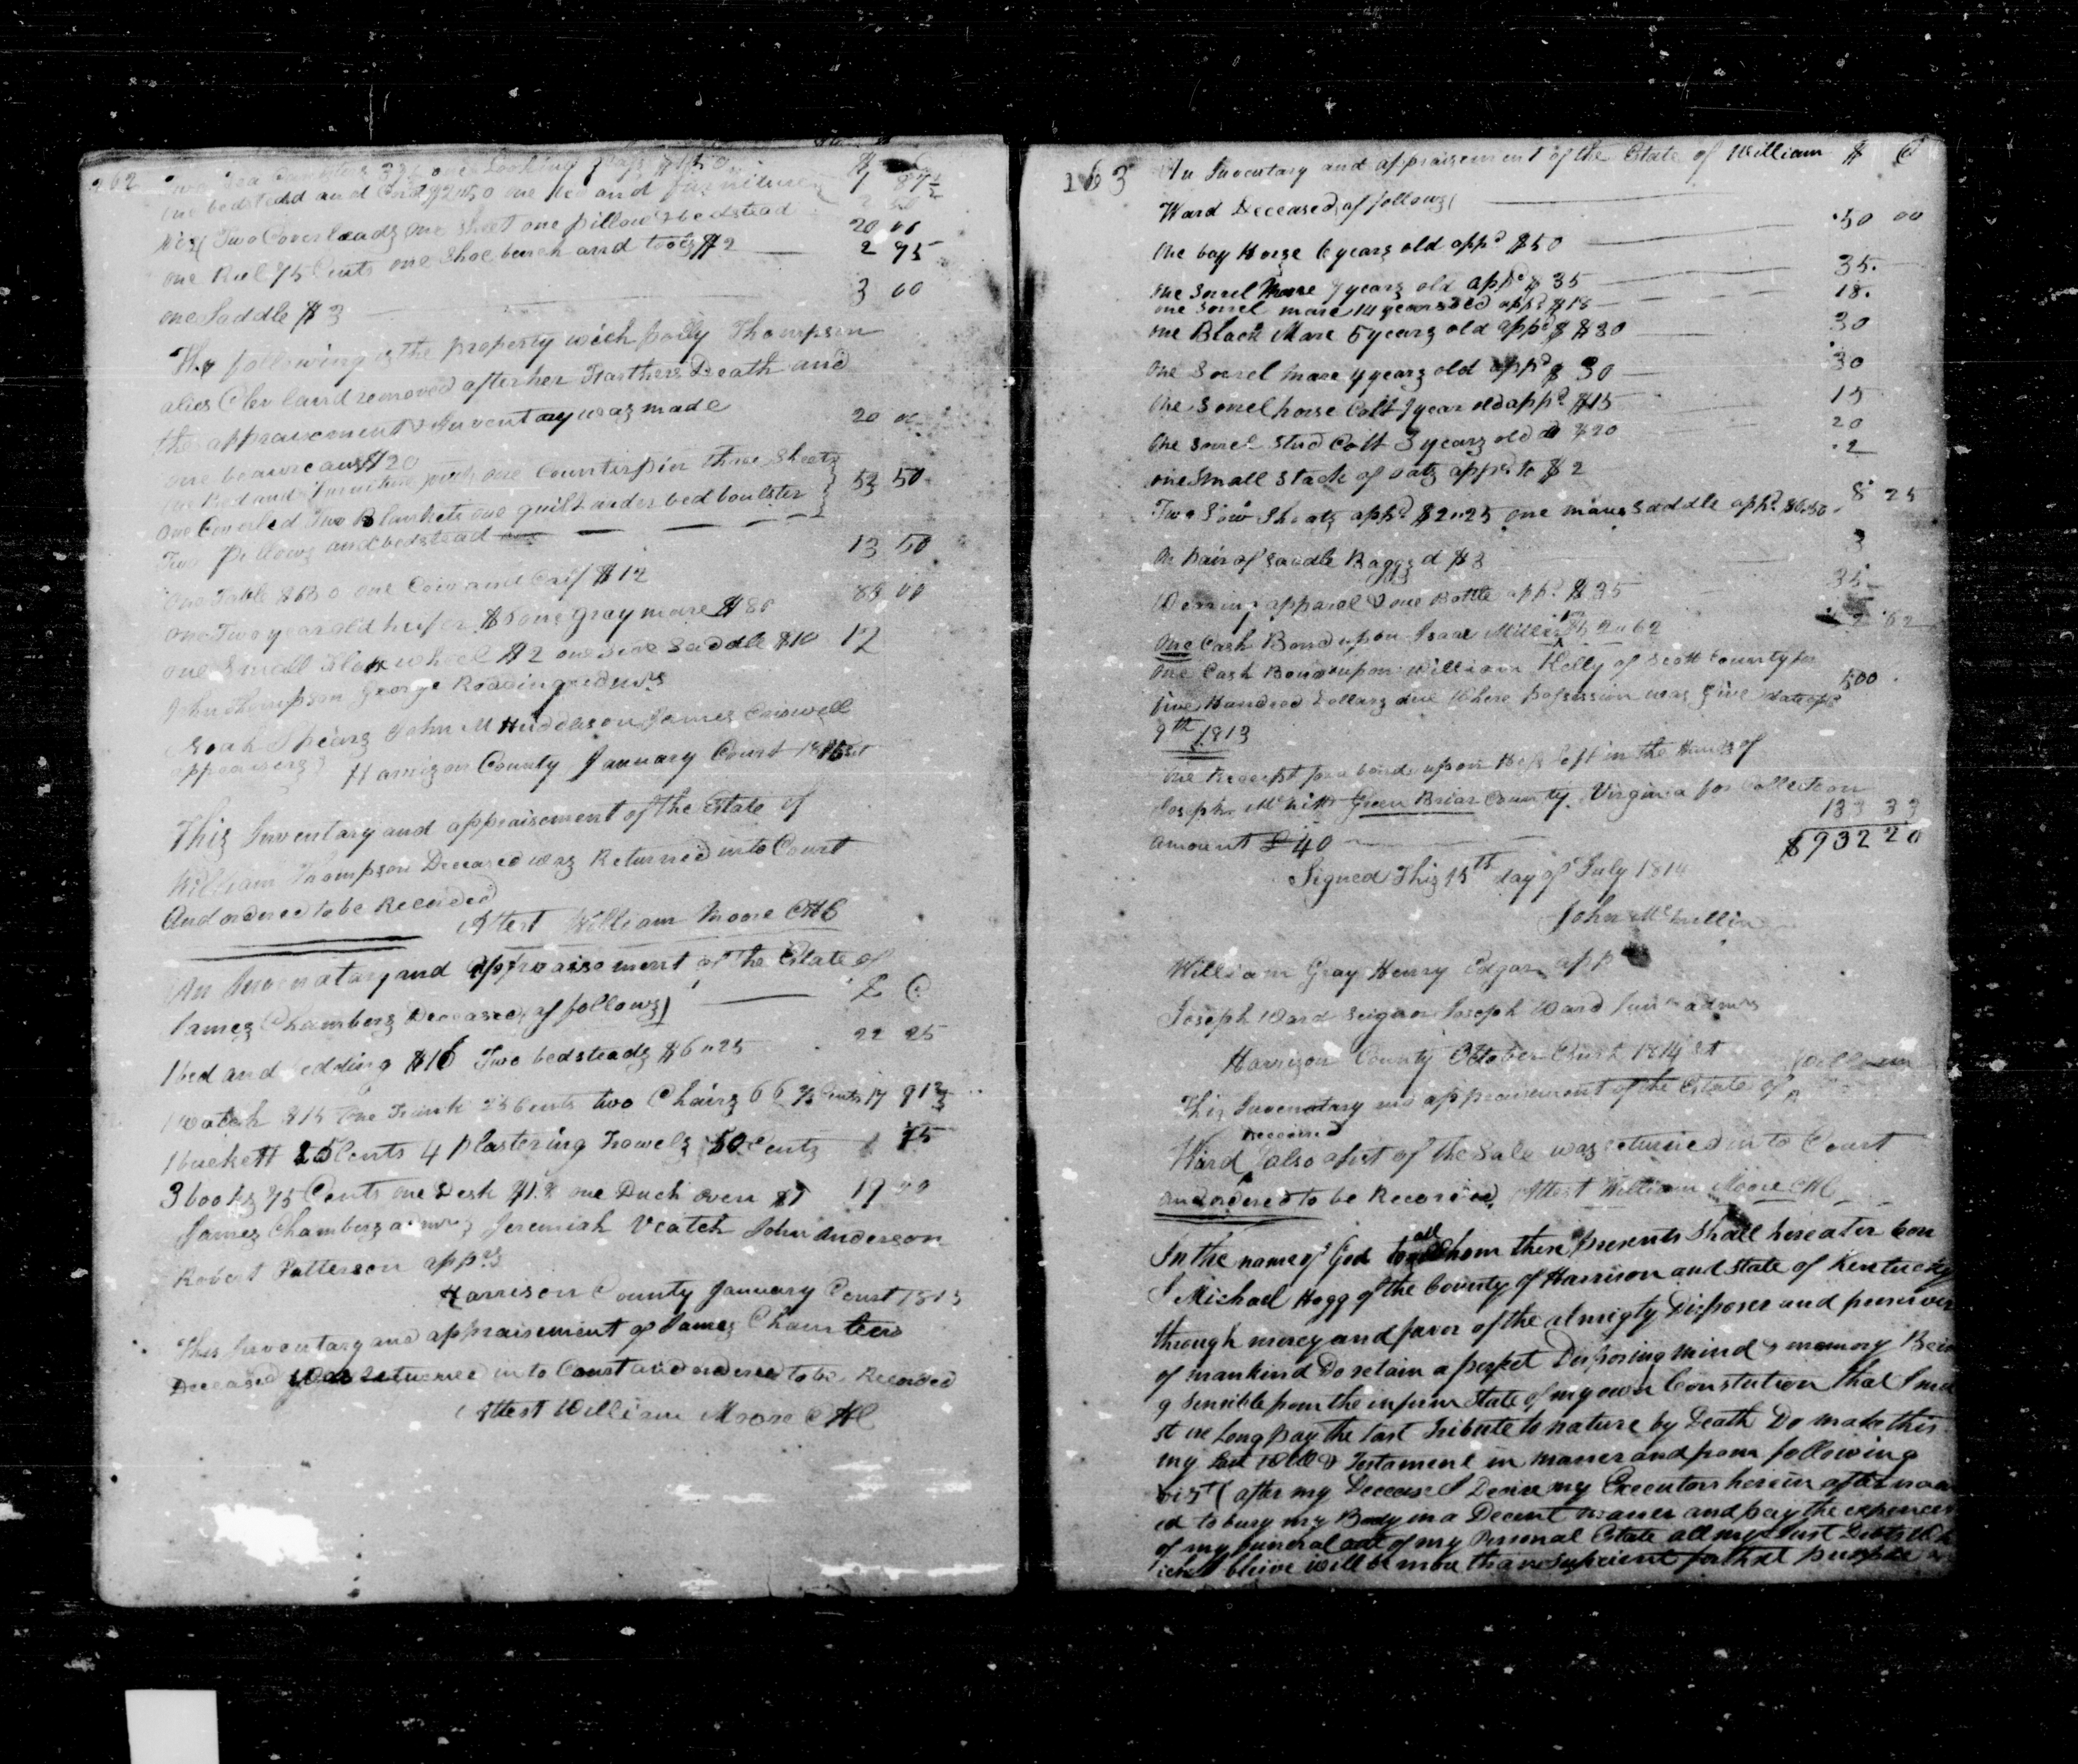 262
Two Tea Canisters one Looking glass
one bedstead and Cord $2.50 one bed and furniture 1 87½
Viz( Two Coverleads one Sheet one pillow & bedstead 20 00
one Reel 75 Cents one Shoe bench and tools $2 2 75
one Saddle $3 3 00
The following is the property wich polly Thompson
alies Cleveland removed after her Death and
the appraisement & Inventary was made
one beaureau $20 20 00
one Bed and furniture one Counterpin three Sheets
one Coverled Two Blankets one quilt under bed boulster 53 50
Two pillows and bedstead
one Table one Cow and Calf $12 13 50
one Two year old heifer one gray mare $80
one Small Flax wheel $2 one Side Saddle $10 12
John Thompson George Reading admrs
Noah Spears John M Huddleson James
appraisers} Harrison County January Court
This Inventary and appraisement of the Estate of
William Thompson Deceased was Returned into Court
And ordered to be Recorded
Attest William Moore CHC
An Inventary and appraisement of the Estate of
James Chambers Deceased, as follows)
1 bed and bedding $16 Two bedsteads $6"25 22 25
1 watch $15 one Trunk 25 Cents two Chairs
1 buckett 25 Cents 4 plastering Trowels 50 Cents 75
3 books 75 Cents one Desk one Duch oven
James Chambers admr; Jeremiah Veatch John Anderson
Robert Patterson apprs
Harrison County January Court 1815
This Inventary and appraisement of James Chambers
Deceased was returned in to Court and ordered to be Recorded
Attest William Moore CHC
263
An Inventary and appraisement of the Estate of William $ C
Ward Deceased, as follows(
one bay Horse 6 years old appd $50 50 00
one Sorrel Mare 7 years old appd $35 35
one Sorrel mare 14 years old appd $18 18
one Black Mare 5 years old appd $30 30
one Sorrel mare 4 years old appd $30 30
one Sorrel horse Colt 1 year old appd $15 15
one Sorrel Stud Colt 3 years old $20 20
one Small Stack of oats appd to $2 2
Two Sow Shoats appd $2"25 one mans Saddle appd 8 25
on pair of Saddle Baggs d $3 3
Wearing apparel & one Bottle appd $35 35
One Cash Bond upon Isaac Miller 2"62 2 62
one Cash Bond upon William Kelly of Scott County for
five Hundred Dollars due Where possession was give 500
9th 1813
one Receipt for a bond upon left in the Hands of
Joseph Green Briar County Virginia for Collection
amount £40 133 33
$932 20
Signed This 15th day of July 1814
John McMillin
William Gray Henry Edgar appr
Joseph Ward Seignor Joseph Ward Junr admrs
Harrison County October Court 1814 st
This Inventary and appraisement of the Estate of William
Deceased
Ward also a list of the Sale was returned in to Court
and ordered to be Recorded, Attest William Moore CHC
In the name of God to all Whom these presents Shall hereater Com
I Michael Hogg of the County of Harrison and State of Kentucky
through mercy and favor of the almigty Disposer and preserver
of mankind Do retain a perfect Disposing mind & memory Bein
g Sensible from the infirm State of my own Constution that I mu
st ere Long pay the last Tribute to nature by Death Do make this
my Last Will & Testament in maner and from following
vizt( after my Decease I Desire my Executors herein after nam
ed to bury my Body in a Decent maner and pay the expences
of my funeral out of my Personal Estate all my Just Debts Wh
ich I bleive will be more than suficient for that purpose